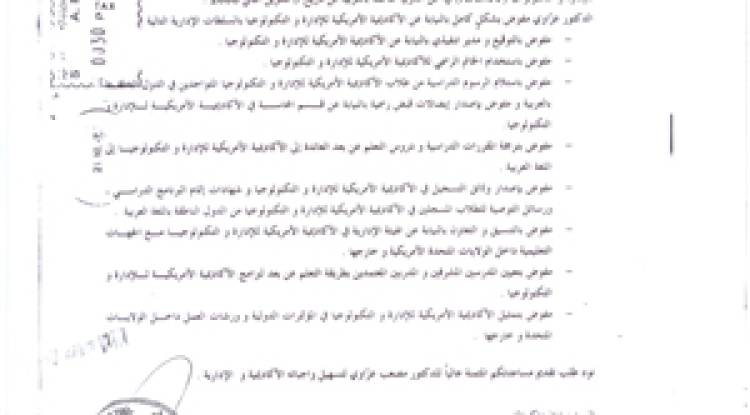 الدكتور عزاوي مفوض بشكل كامل بالنيابة عن الأكاديمية الأمريكية للإدارة و التكنولوجيا بالسلطات الإدارية التالية
- مفوض بالتوقيع و مدير تنفيذي بالنيابة عن الأكاديمية الأمريكية للإدارة و التكنولوجيا .
- مفوض باستخدام الخاتم الرسمي للأكاديمية الأمريكية للإدارة و التكنولوجيا .
- مفوض باستلام الرسوم الدراسية من طلاب الأكاديمية الأمريكية للإدارة و التكنولوجيا المتواجدين في الدول
بالعربية و مفوض بإصدار إيصالات قبض رسمية بالنيابة عن قسم المحاسبة في الأكاديمية الأمريكية للإدارة و
التكنولوجيا
- مفوض بترجمة المقررات الدراسية و دروس التعلم عن بعد العائدة إلى الأكاديمية الأمريكية للإدارة و التكنولوجيا إلى
اللغة العربية .
- مفوض بإصدار وثائق التسجيل في الأكاديمية الأمريكية للإدارة و التكنولوجيا و شهادات إتمام البرنامج الدراسي ،
ورسائل التوصية للطلاب المسجلين في الأكاديمية الأمريكية للإدارة و التكنولوجيا من الدول الناطقة باللغة العربية .
- مفوض بالتنسيق و التعاون بالنيابة عن الهيئة الإدارية في الأكاديمية الأمريكية للإدارة و التكنولوجيا مع الجهات
التعليمية داخل الولايات المتحدة الأمريكية و خارجها .
- مفوض بتعيين المدرسين المشرفين و المدربين المعتمدين بطريقة التعلم عن بعد لبرامج الأكاديمية الأمريكية للإدارة و
التكنولوجيا .
- مفوض بتمثيل الأكاديمية الأمريكية للإدارة و التكنولوجيا في المؤتمرات الدولية و ورشات العمل داخل الولايات
المتحدة و خارجها .
نود طلب تقديم مساعدتكم المثمنة عالياً للدكتور مصعب عزاوي لتسهيل واجباته الأكاديمية و الإدارية .